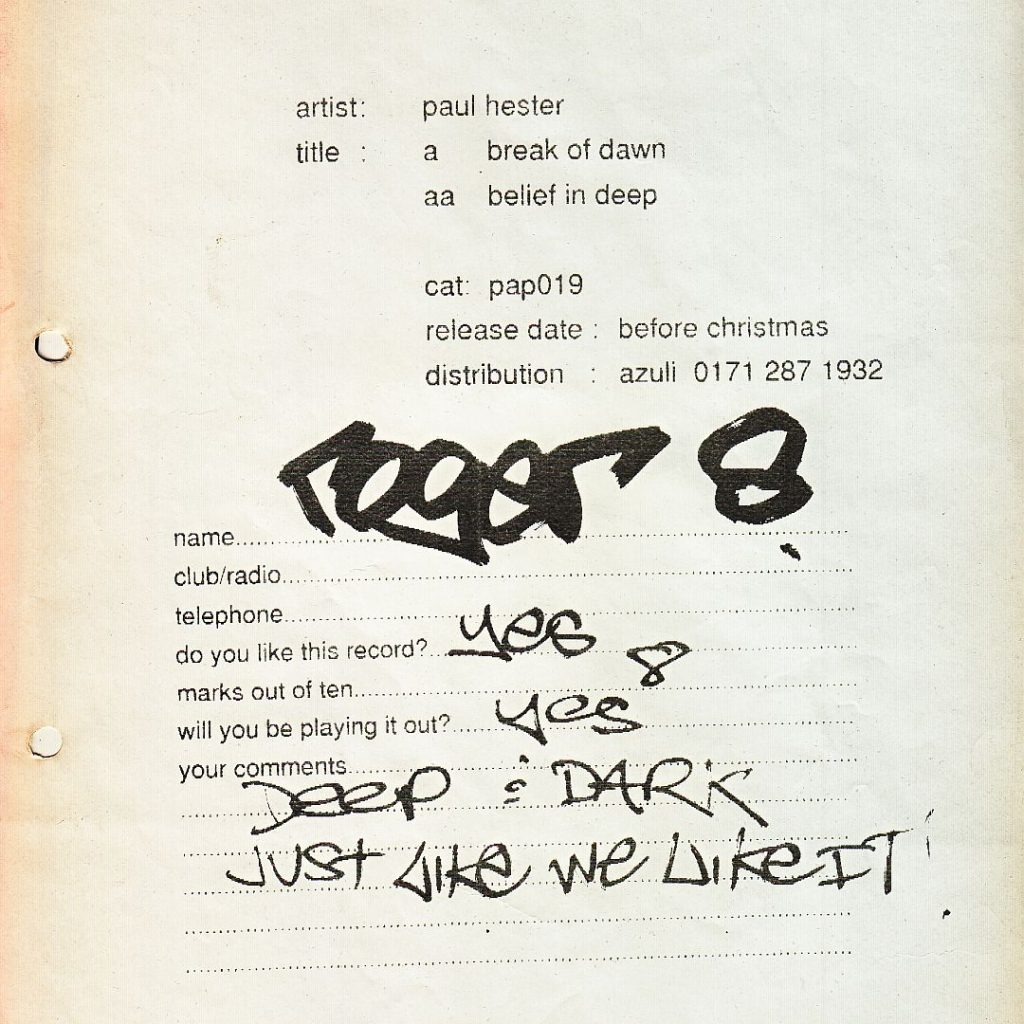 artist: paul hester
title : a break of dawn
aa belief in deep
cat: pap019
release date : before christmas
distribution : azuli 0171 287 1932
roger 8
name
club/radio
telephone
do you like this record? yes
marks out of ten 8
will you be playing it out? yes
your comments
DEEP & DARK
JUST LIKE WE LIKE IT!